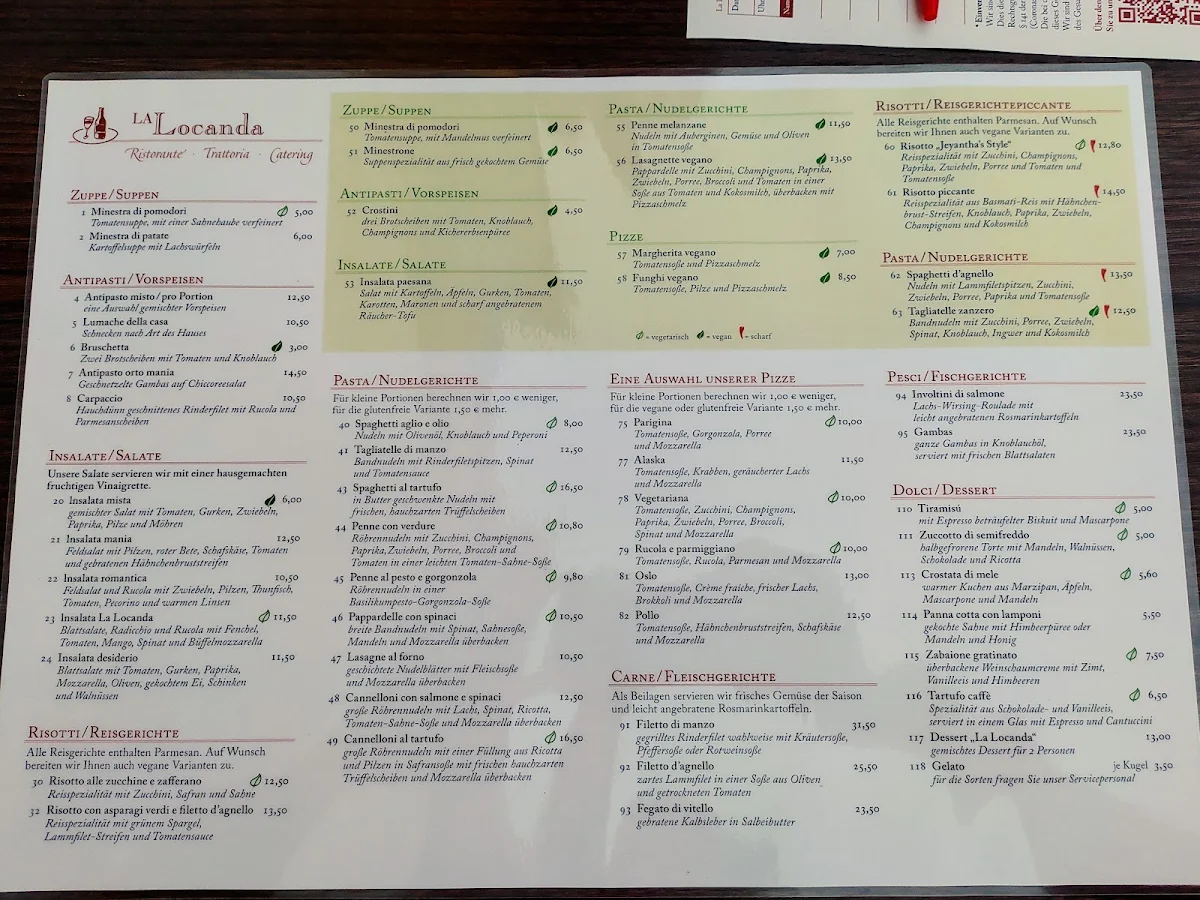 LA Locanda
Ristorante · Trattoria · Catering
Zuppe/Suppen
1 Minestra di pomodori 5,00
Tomatensuppe, mit einer Sahnehaube verfeinert
2 Minestra di patate 6,00
Kartoffelsuppe mit Lachswürfeln
Antipasti/Vorspeisen
4 Antipasto misto/pro Portion 12,50
eine Auswahl gemischter Vorspeisen
5 Lumache della casa 10,50
Schnecken nach Art des Hauses
6 Bruschetta 3,00
Zwei Brotscheiben mit Tomaten und Knoblauch
7 Antipasto orto mania 14,50
Geschnetzelte Gambas auf Chiccoreesalat
8 Carpaccio 10,50
Hauchdünn geschnittenes Rinderfilet mit Rucola und
Parmesanscheiben
Insalate/Salate
Unsere Salate servieren wir mit einer hausgemachten
fruchtigen Vinaigrette.
20 Insalata mista 6,00
gemischter Salat mit Tomaten, Gurken, Zwiebeln,
Paprika, Pilze und Möhren
21 Insalata mania 12,50
Feldsalat mit Pilzen, roter Bete, Schafskäse, Tomaten
und gebratenen Hähnchenbruststreifen
22 Insalata romantica 10,50
Feldsalat und Rucola mit Zwiebeln, Pilzen, Thunfisch,
Tomaten, Pecorino und warmen Linsen
23 Insalata La Locanda 11,50
Blattsalate, Radicchio und Rucola mit Fenchel,
Tomaten, Mango, Spinat und Büffelmozzarella
24 Insalata desiderio 11,50
Blattsalate mit Tomaten, Gurken, Paprika,
Mozzarella, Oliven, gekochtem Ei, Schinken
und Walnüssen
Risotti/Reisgerichte
Alle Reisgerichte enthalten Parmesan. Auf Wunsch
bereiten wir Ihnen auch vegane Varianten zu.
30 Risotto alle zucchine e zafferano 12,50
Reisspezialität mit Zucchini, Safran und Sahne
32 Risotto con asparagi verdi e filetto d'agnello 13,50
Reisspezialität mit grünem Spargel,
Lammfilet-Streifen und Tomatensauce
Zuppe/Suppen
50 Minestra di pomodori 6,50
Tomatensuppe, mit Mandelmus verfeinert
51 Minestrone 6,50
Suppenspezialität aus frisch gekochtem Gemüse
Antipasti/Vorspeisen
52 Crostini 4,50
drei Brotscheiben mit Tomaten, Knoblauch,
Champignons und Kichererbsenpüree
Insalate/Salate
53 Insalata paesana 11,50
Salat mit Kartoffeln, Äpfeln, Gurken, Tomaten,
Karotten, Maronen und scharf angebratenem
Räucher-Tofu
Pasta/Nudelgerichte
55 Penne melanzane 11,50
Nudeln mit Auberginen, Gemüse und Oliven
in Tomatensoße
56 Lasagnette vegano 13,50
Pappardelle mit Zucchini, Champignons, Paprika,
Zwiebeln, Porree, Broccoli und Tomaten in einer
Soße aus Tomaten und Kokosmilch, überbacken mit
Pizzaschmelz
Pizze
57 Margherita vegano 7,00
Tomatensoße und Pizzaschmelz
58 Funghi vegano 8,50
Tomatensoße, Pilze und Pizzaschmelz
= vegetarisch = vegan = scharf
Risotti/Reisgerichtepiccante
Alle Reisgerichte enthalten Parmesan. Auf Wunsch
bereiten wir Ihnen auch vegane Varianten zu.
60 Risotto „Jeyantha's Style“ 12,80
Reisspezialität mit Zucchini, Champignons,
Paprika, Zwiebeln, Porree und Tomaten und
Tomatensoße
61 Risotto piccante 14,50
Reisspezialität aus Basmati-Reis mit Hähnchen-
brust-Streifen, Knoblauch, Paprika, Zwiebeln,
Champignons und Kokosmilch
Pasta/Nudelgerichte
62 Spaghetti d'agnello 13,50
Nudeln mit Lammfiletspitzen, Zucchini,
Zwiebeln, Porree, Paprika und Tomatensoße
63 Tagliatelle zanzero 12,50
Bandnudeln mit Zucchini, Porree, Zwiebeln,
Spinat, Knoblauch, Ingwer und Kokosmilch
Pasta/Nudelgerichte
Für kleine Portionen berechnen wir 1,00 € weniger,
für die glutenfreie Variante 1,50 € mehr.
40 Spaghetti aglio e olio 8,00
Nudeln mit Olivenöl, Knoblauch und Peperoni
41 Tagliatelle di manzo 12,50
Bandnudeln mit Rinderfiletspitzen, Spinat
und Tomatensauce
43 Spaghetti al tartufo 16,50
in Butter geschwenkte Nudeln mit
frischen, hauchzarten Trüffelscheiben
44 Penne con verdure 10,80
Röhrennudeln mit Zucchini, Champignons,
Paprika, Zwiebeln, Porree, Broccoli und
Tomaten in einer leichten Tomaten-Sahne-Soße
45 Penne al pesto e gorgonzola 9,80
Röhrennudeln in einer
Basilikumpesto-Gorgonzola-Soße
46 Pappardelle con spinaci 10,50
breite Bandnudeln mit Spinat, Sahnesoße,
Mandeln und Mozzarella überbacken
47 Lasagne al forno 10,50
geschichtete Nudelblätter mit Fleischsoße
und Mozzarella überbacken
48 Cannelloni con salmone e spinaci 12,50
große Röhrennudeln mit Lachs, Spinat, Ricotta,
Tomaten-Sahne-Soße und Mozzarella überbacken
49 Cannelloni al tartufo 16,50
große Röhrennudeln mit einer Füllung aus Ricotta
und Pilzen in Safransoße mit frischen hauchzarten
Trüffelscheiben und Mozzarella überbacken
Eine Auswahl unserer Pizze
Für kleine Portionen berechnen wir 1,00 € weniger,
für die vegane oder glutenfreie Variante 1,50 € mehr.
75 Parigina 10,00
Tomatensoße, Gorgonzola, Porree
und Mozzarella
77 Alaska 11,50
Tomatensoße, Krabben, geräucherter Lachs
und Mozzarella
78 Vegetariana 10,00
Tomatensoße, Zucchini, Champignons,
Paprika, Zwiebeln, Porree, Broccoli,
Spinat und Mozzarella
79 Rucola e parmiggiano 10,00
Tomatensoße, Rucola, Parmesan und Mozzarella
81 Oslo 13,00
Tomatensoße, Crème fraiche, frischer Lachs,
Brokkoli und Mozzarella
82 Pollo 12,50
Tomatensoße, Hähnchenbruststreifen, Schafskäse
und Mozzarella
Carne/Fleischgerichte
Als Beilagen servieren wir frisches Gemüse der Saison
und leicht angebratene Rosmarinkartoffeln.
91 Filetto di manzo 31,50
gegrilltes Rinderfilet wahlweise mit Kräutersoße,
Pfeffersoße oder Rotweinsoße
92 Filetto d'agnello 25,50
zartes Lammfilet in einer Soße aus Oliven
und getrockneten Tomaten
93 Fegato di vitello 23,50
gebratene Kalbsleber in Salbeibutter
Pesci/Fischgerichte
94 Involtini di salmone 23,50
Lachs-Wirsing-Roulade mit
leicht angebratenen Rosmarinkartoffeln
95 Gambas 23,50
ganze Gambas in Knoblauchöl,
serviert mit frischen Blattsalaten
Dolci/Dessert
110 Tiramisú 5,00
mit Espresso beträufelter Biskuit und Mascarpone
111 Zuccotto di semifreddo 5,00
halbgefrorene Torte mit Mandeln, Walnüssen,
Schokolade und Ricotta
113 Crostata di mele 5,60
warmer Kuchen aus Marzipan, Äpfeln,
Mascarpone und Mandeln
114 Panna cotta con lamponi 5,50
gekochte Sahne mit Himbeerpüree oder
Mandeln und Honig
115 Zabaione gratinato 7,50
überbackene Weinschaumcreme mit Zimt,
Vanilleeis und Himbeeren
116 Tartufo caffè 6,50
Spezialität aus Schokolade- und Vanilleeis,
serviert in einem Glas mit Espresso und Cantuccini
117 Dessert „La Locanda“ 13,00
gemischtes Dessert für 2 Personen
118 Gelato je Kugel 3,50
für die Sorten fragen Sie unser Servicepersonal